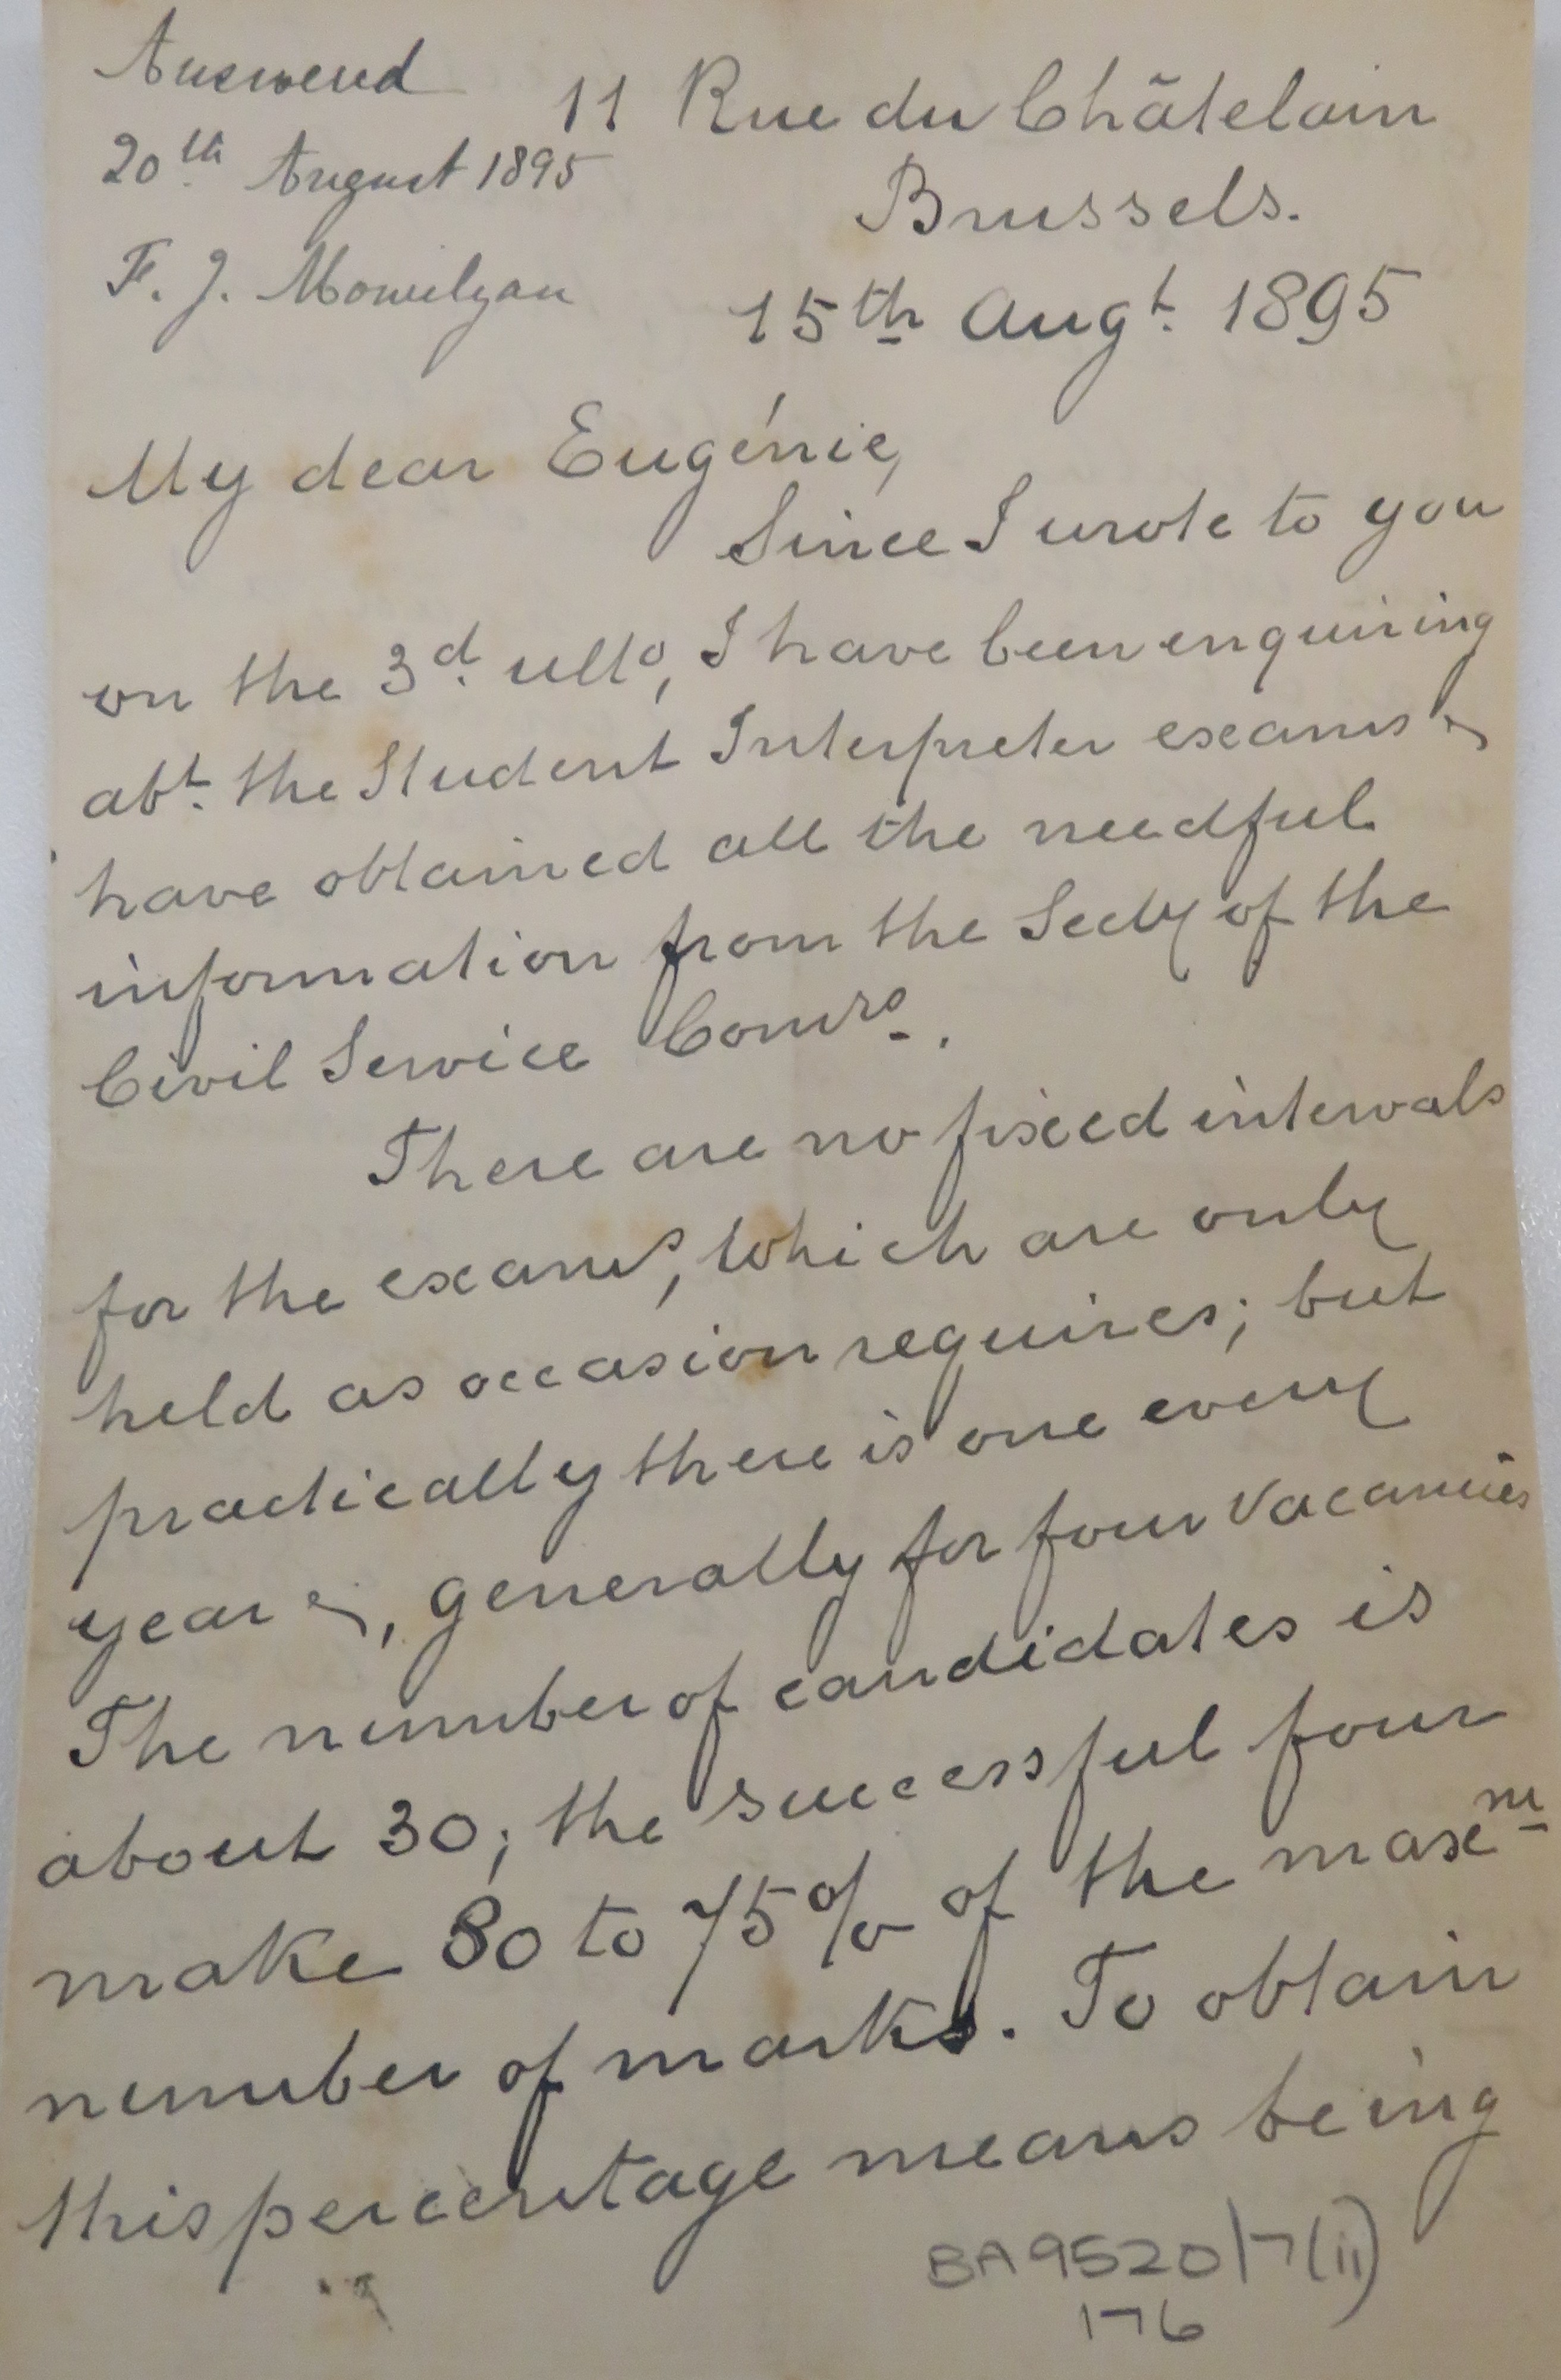 Answered
20th August 1895
F. J.
11 Rue du Châtelain
Brussels.
15th Augt. 1895
My dear Eugénie,
Since I wrote to you
on the 3d. ulto, I have been enquiring
abt. the Student Interpreter exams &
have obtained all the needful
information from the Secty of the
Civil Service Comrs.
There are no fixed intervals
for the exams, which are only
held as occasion requires; but
practically there is one every
year &, generally for four vacancies
The number of candidates is
about 30; the successful four
make 80 to 75% of the maxm
number of marks. To obtain
this percentage means being
BA9520/7(ii)
176